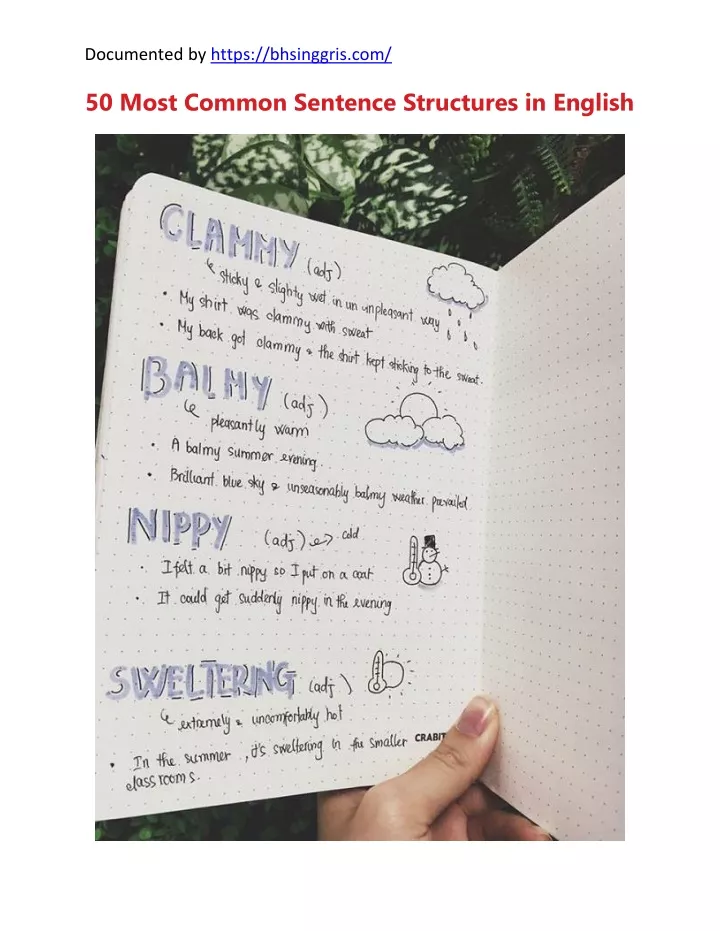 Documented by https://bhsinggris.com/
50 Most Common Sentence Structures in English
CLAMMY (adj)
sticky & slighty wet in un unpleasant way
• My shirt was clammy with sweat
• My back got clammy & the shirt kept sticking to the sweat.
BALMY (adj)
pleasantly warm
• A balmy summer evening.
• Brilliant blue sky & unseasonably balmy weather prevailed
NIPPY (adj) cold
• I felt a bit nippy so I put on a coat
• It could get suddenly nippy in the evening
SWELTERING (adj)
extremely & uncomfortably hot
• In the summer, it's sweltering in the smaller
classrooms.
CRABIT